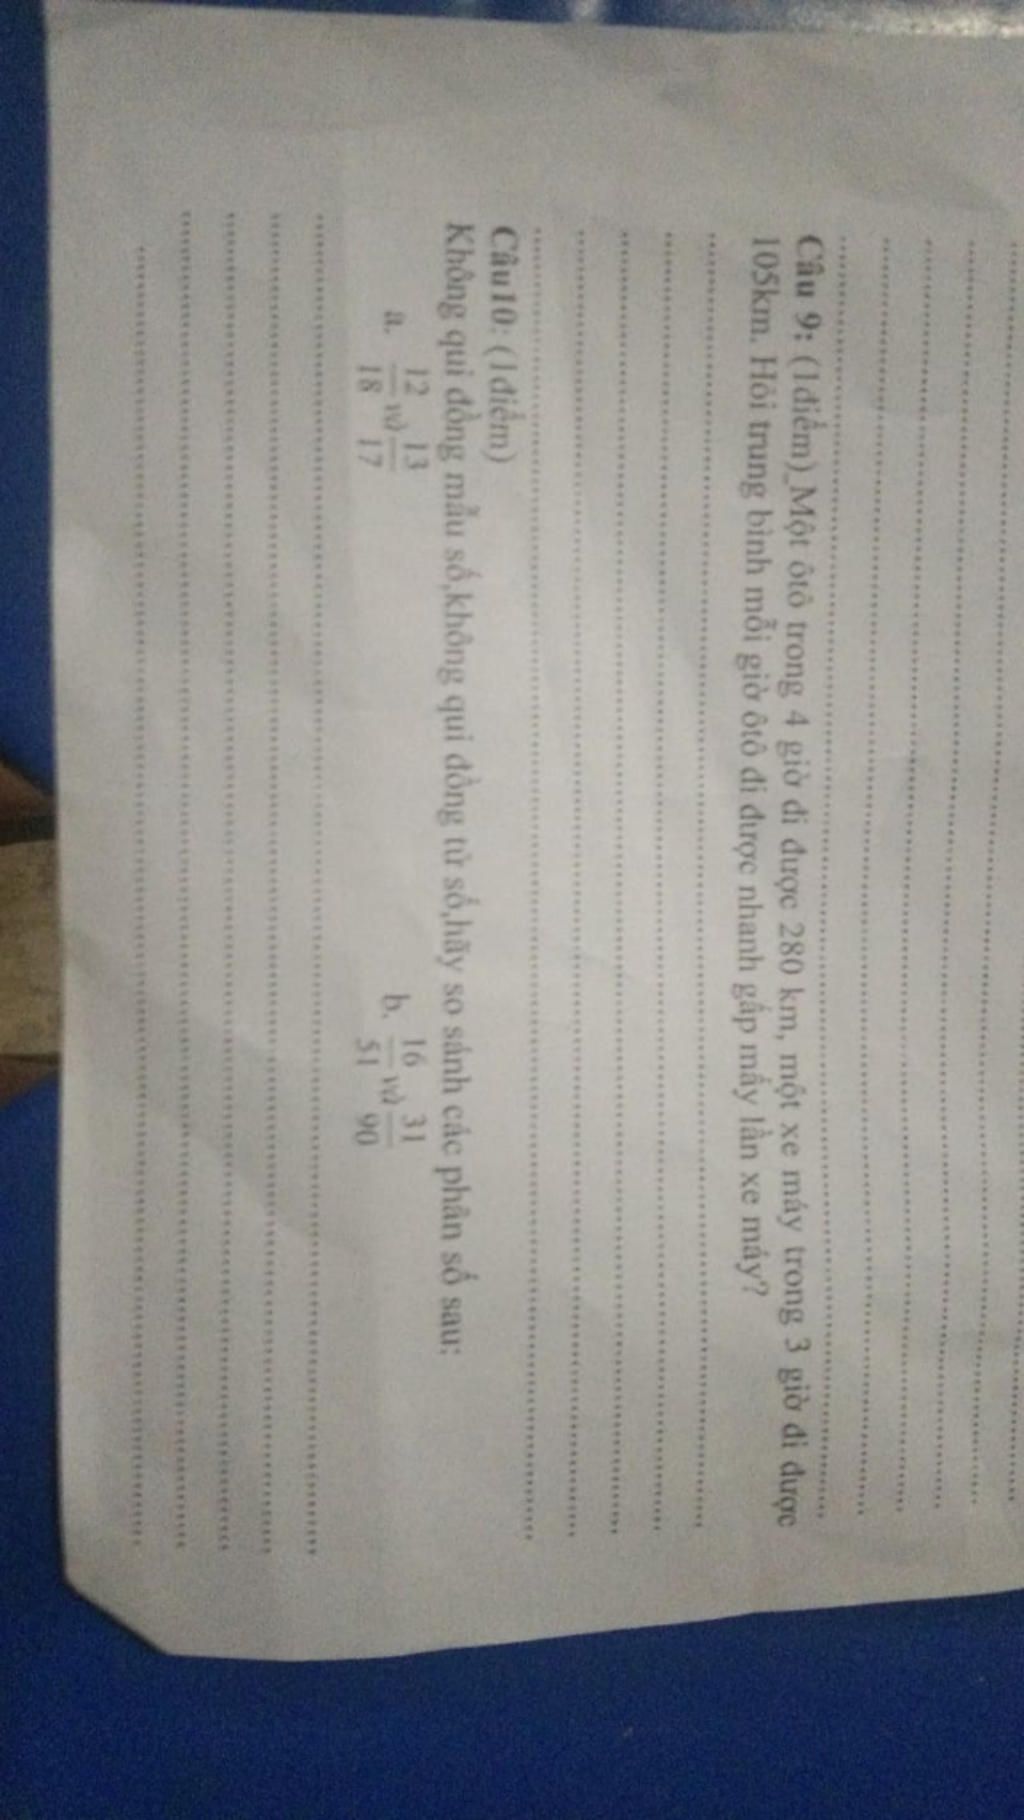 Câu 9: (1điểm) Một ôtô trong 4 giờ đi được 280 km, một xe máy trong 3 giờ đi được
105km. Hỏi trung bình mỗi giờ ôtô đi được nhanh gấp mấy lần xe máy?
Câu10: (1điểm)
Không qui đồng mẫu số,không qui đồng tử số,hãy so sánh các phân số sau:
a. 12/18 và 13/17 b. 16/51 và 31/90